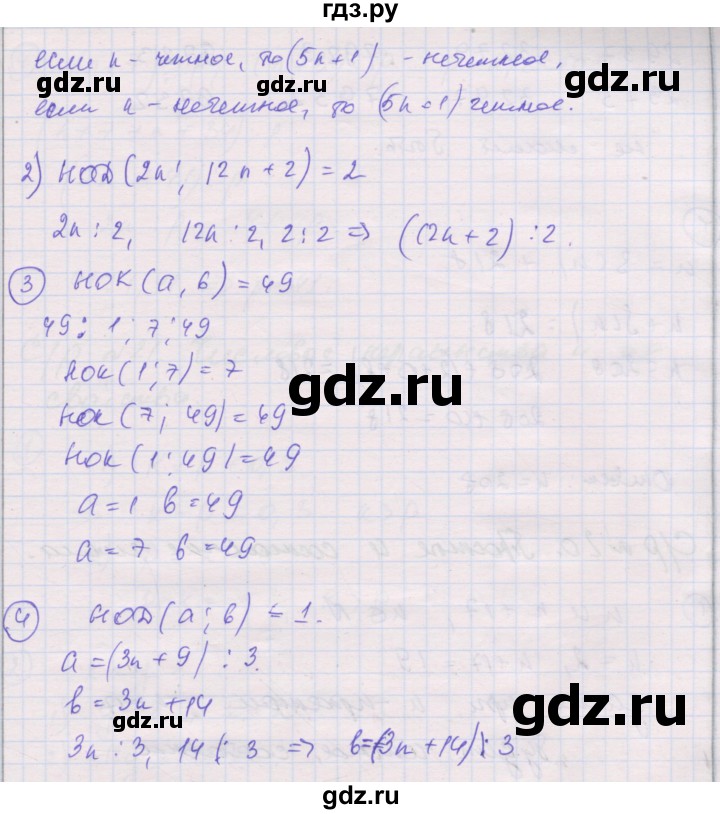 гдз.ру
если n - четное, то (5n+1) - нечетное,
если n - нечетное, то (5n+1) четное.
2) НОД (2n; 12n+2) = 2
2n ⋮ 2, 12n ⋮ 2, 2 ⋮ 2 => (12n+2) ⋮ 2.
3 НОК (a, b) = 49
49 : 1; 7; 49
НОК (1; 7) = 7
НОК (7; 49) = 49
НОК (1; 49) = 49
a = 1 b = 49
a = 7 b = 49
4 НОД (a; b) = 1.
a = (3n+9) ⋮ 3.
b = 3n+14
3n ⋮ 3, 14 ⋮̸ 3 => b = (3n+14) ⋮̸ 3
gdz.ru
gdz.ru
gdz.ru
gdz.ru
gdz.ru
gdz.ru
gdz.ru
gdz.ru
gdz.ru
gdz.ru
gdz.ru